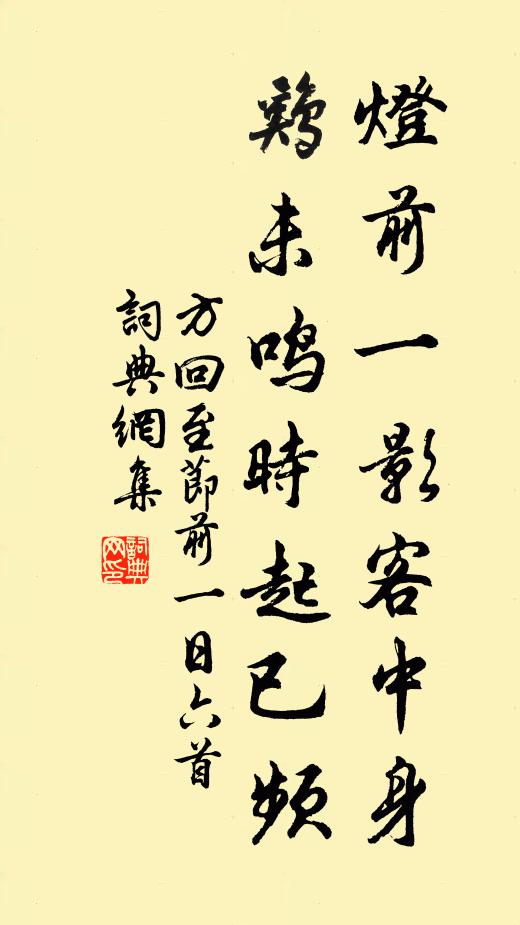 燈前一影客中身
鷄未鳴時起已頻
方回至節前一日六首
詞典網集
詞典
网印